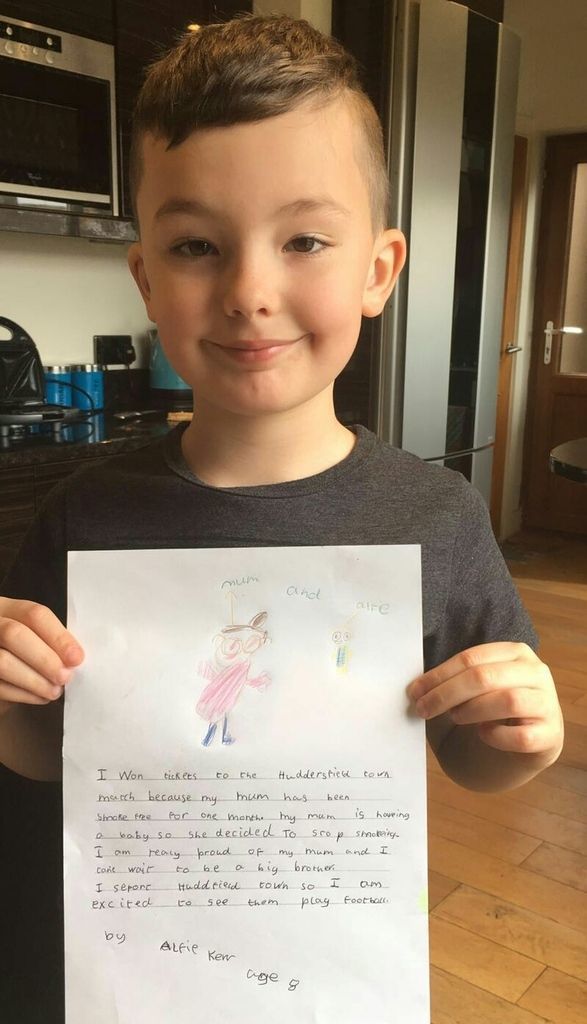 mum and alfe
I won tickets to the Huddersfield town
match because my mum has been
smoke free for one month. my mum is having
a baby so she decided To scop smoking.
I am realy proud of my mum and I
cant wait to be a big brother.
I seport Huddfield town so I am
excited to see them play football.
by Alfie Kerr
age 8